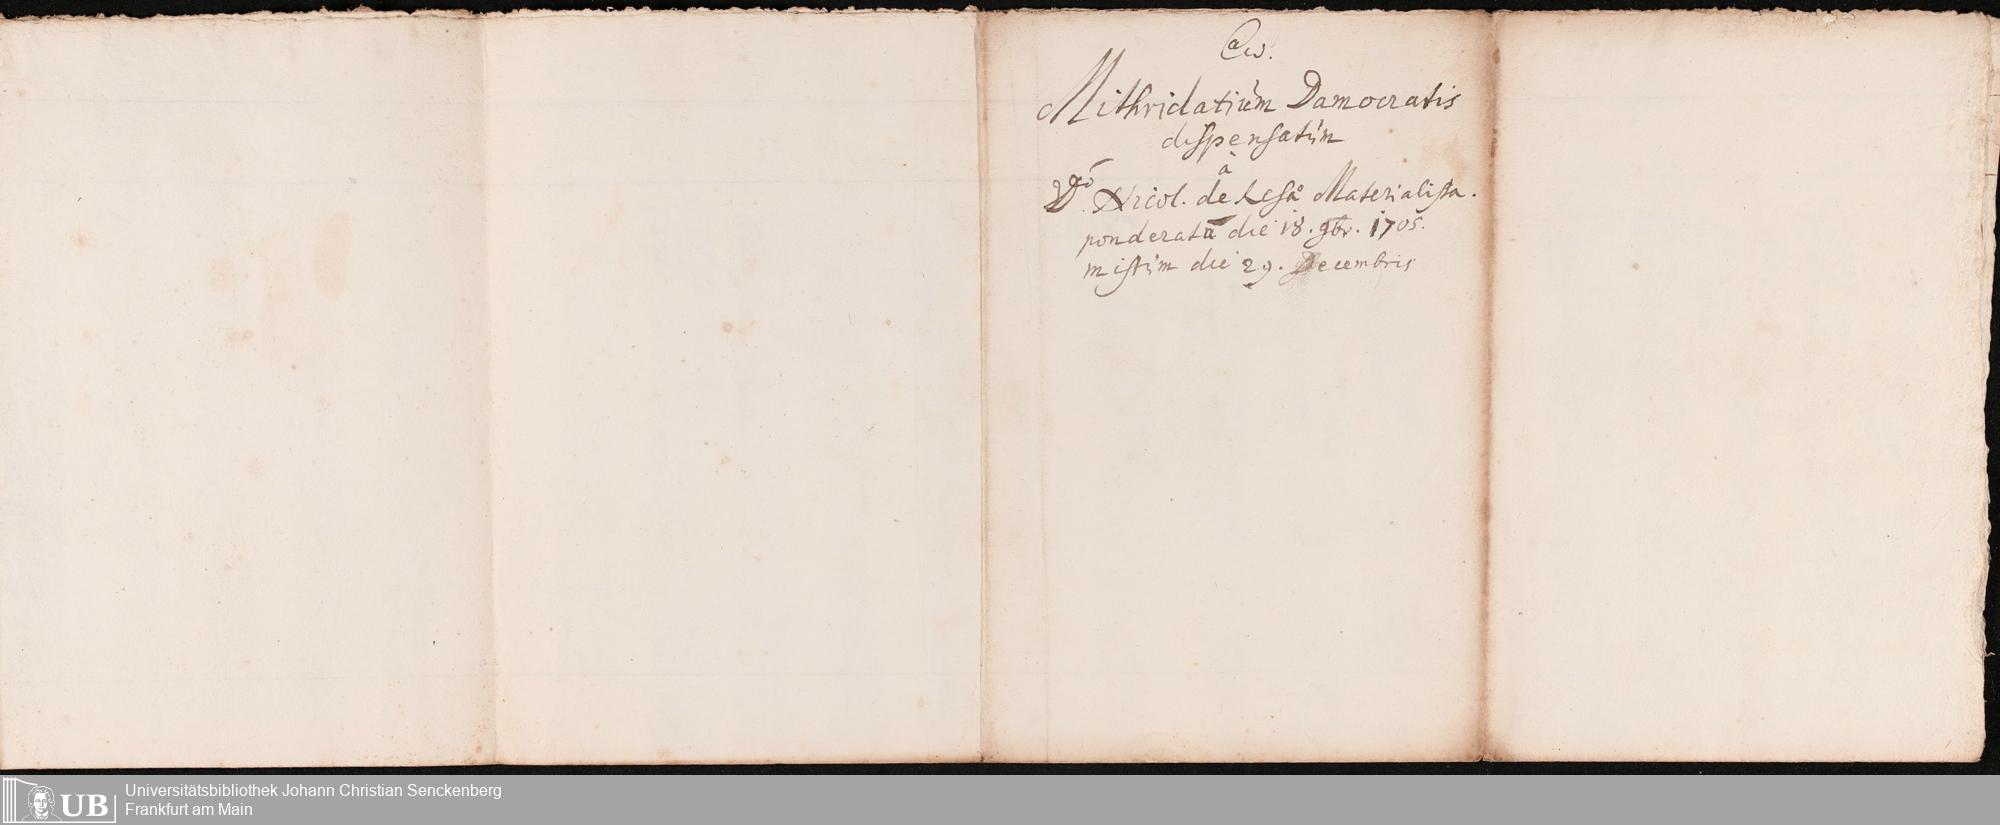 Mithridatium Damocratis
dispensatum
à
Dno. Nicol. de Lesa Materialista.
ponderatū die 18. 9br. 1705.
mistum die 29. Decembris
UB
Universitätsbibliothek Johann Christian Senckenberg
Frankfurt am Main